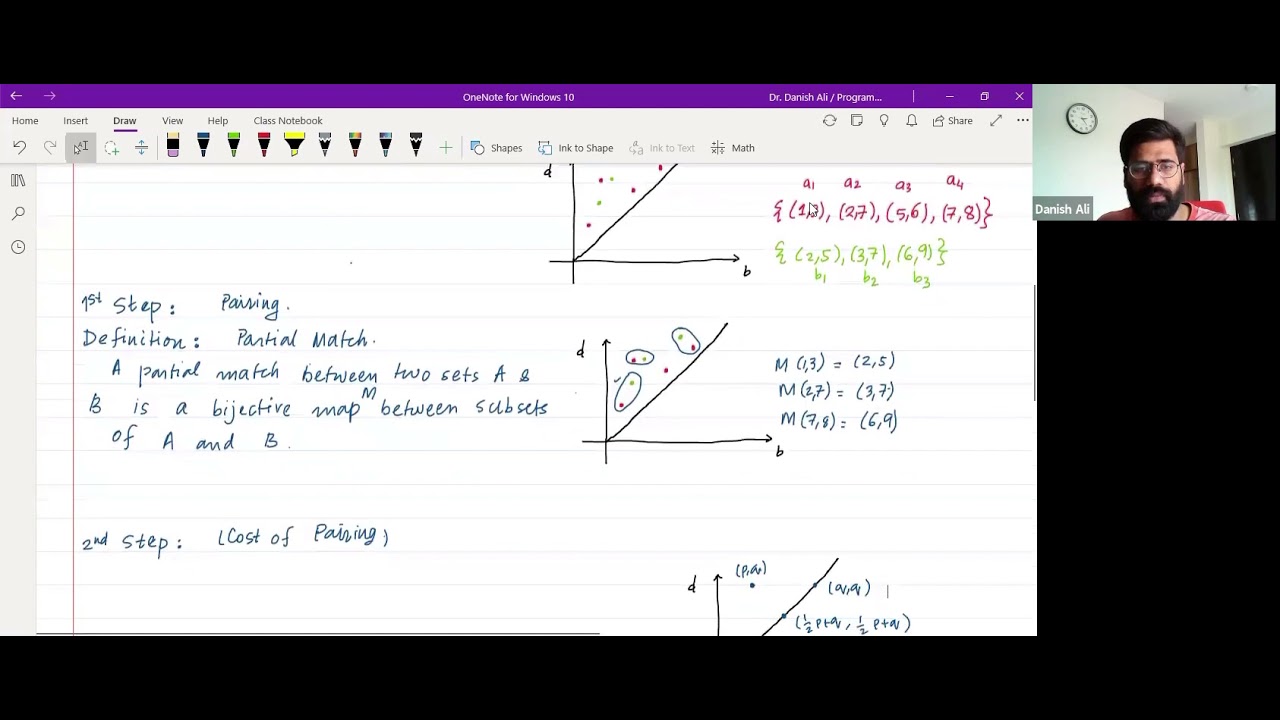 OneNote for Windows 10
Dr. Danish Ali / Program...
Home Insert Draw View Help Class Notebook
Share
Shapes Ink to Shape Ink to Text Math
Danish Ali
d
b
a1 a2 a3 a4
{(1,3), (2,7), (5,6), (7,8)}
{(2,5), (3,7), (6,9)}
b1 b2 b3
1st Step: Pairing.
Definition: Partial Match.
A partial match between two sets A &
B is a bijective map M between subsets
of A and B.
d
b
M(1,3) = (2,5)
M(2,7) = (3,7)
M(7,8) = (6,9)
2nd Step: (Cost of Pairing)
d
(p,q)
(q,q)
(½ p+q, ½ p+q)